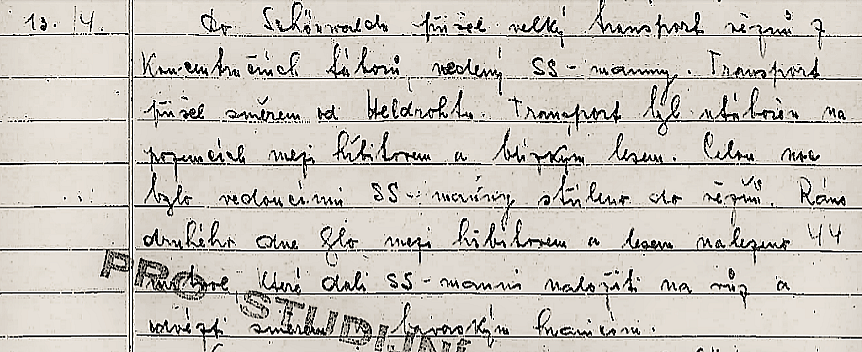 13. /4. Do Schönwaldu přišel velký transport vězňů z
koncentračních táborů, vedený SS-manny. Transport
přišel směrem od Heldrohtu. Transport byl utábořen na
pozemcích mezi hřbitovem a blízkým lesem. Celou noc
bylo vedoucími SS-manny stříleno do vězňů. Ráno
druhého dne bylo mezi hřbitovem a lesem nalezeno 44
mrtvol, které dali SS-manni naložiti na vůz a
odvézti směrem bavorským hranicím.
PRO STUDIJNÍ